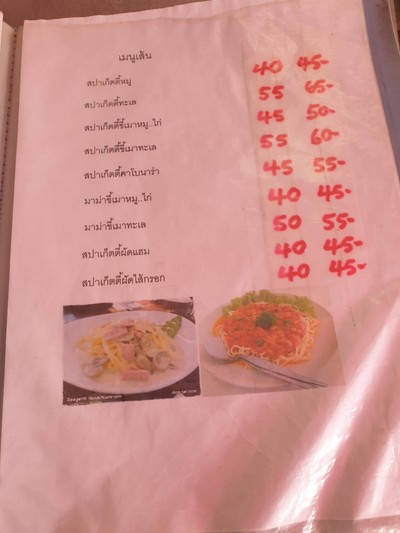 เมนูเส้น
สปาเก็ตตี้หมู 40 45-
สปาเก็ตตี้ทะเล 55 65-
สปาเก็ตตี้ขี้เมาหมู..ไก่ 45 50-
สปาเก็ตตี้ขี้เมาทะเล 55 60-
สปาเก็ตตี้คาโบนาร่า 45 55-
มาม่าขี้เมาหมู..ไก่ 40 45-
มาม่าขี้เมาทะเล 50 55-
สปาเก็ตตี้ผัดแฮม 40 45-
สปาเก็ตตี้ผัดไส้กรอก 40 45-